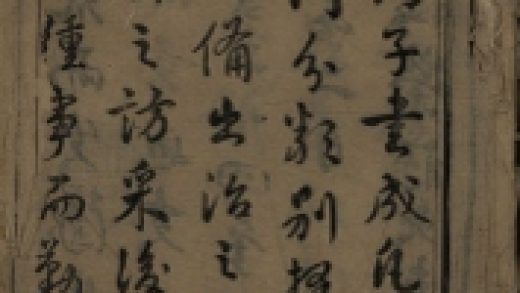 子書成凡
分類別
備出治之
之訪采後
僅事而勤